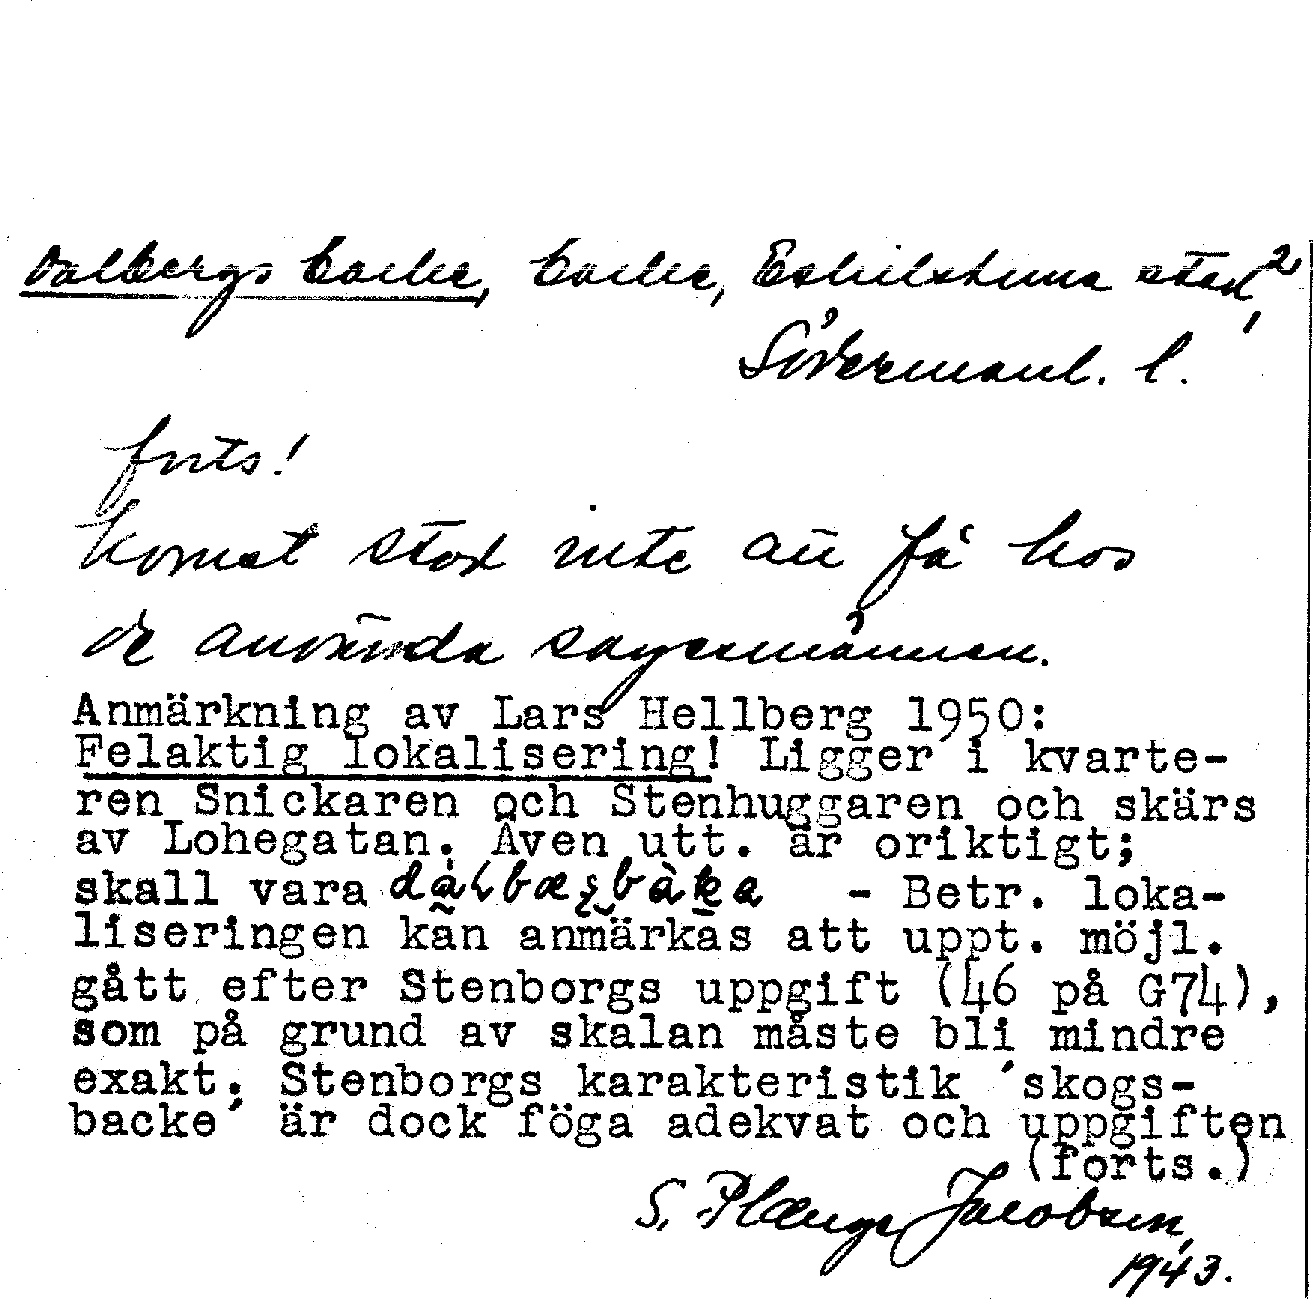 Dalbergs backe, backe, Eskilstuna stad, 2
Södermanl. l.
forts!
kornet stod inte att få hos
de använda sagesmännen.
Anmärkning av Lars Hellberg 1950:
Felaktig lokalisering! Ligger i kvarte-
ren Snickaren och Stenhuggaren och skärs
av Lohegatan. Även utt. är oriktigt;
skall vara - Betr. loka-
liseringen kan anmärkas att uppt. möjl.
gått efter Stenborgs uppgift (46 på G74),
som på grund av skalan måste bli mindre
exakt. Stenborgs karakteristik ´skogs-
backe´ är dock föga adekvat och uppgiften
(forts.)
S. Plænge Jacobson,
1943.